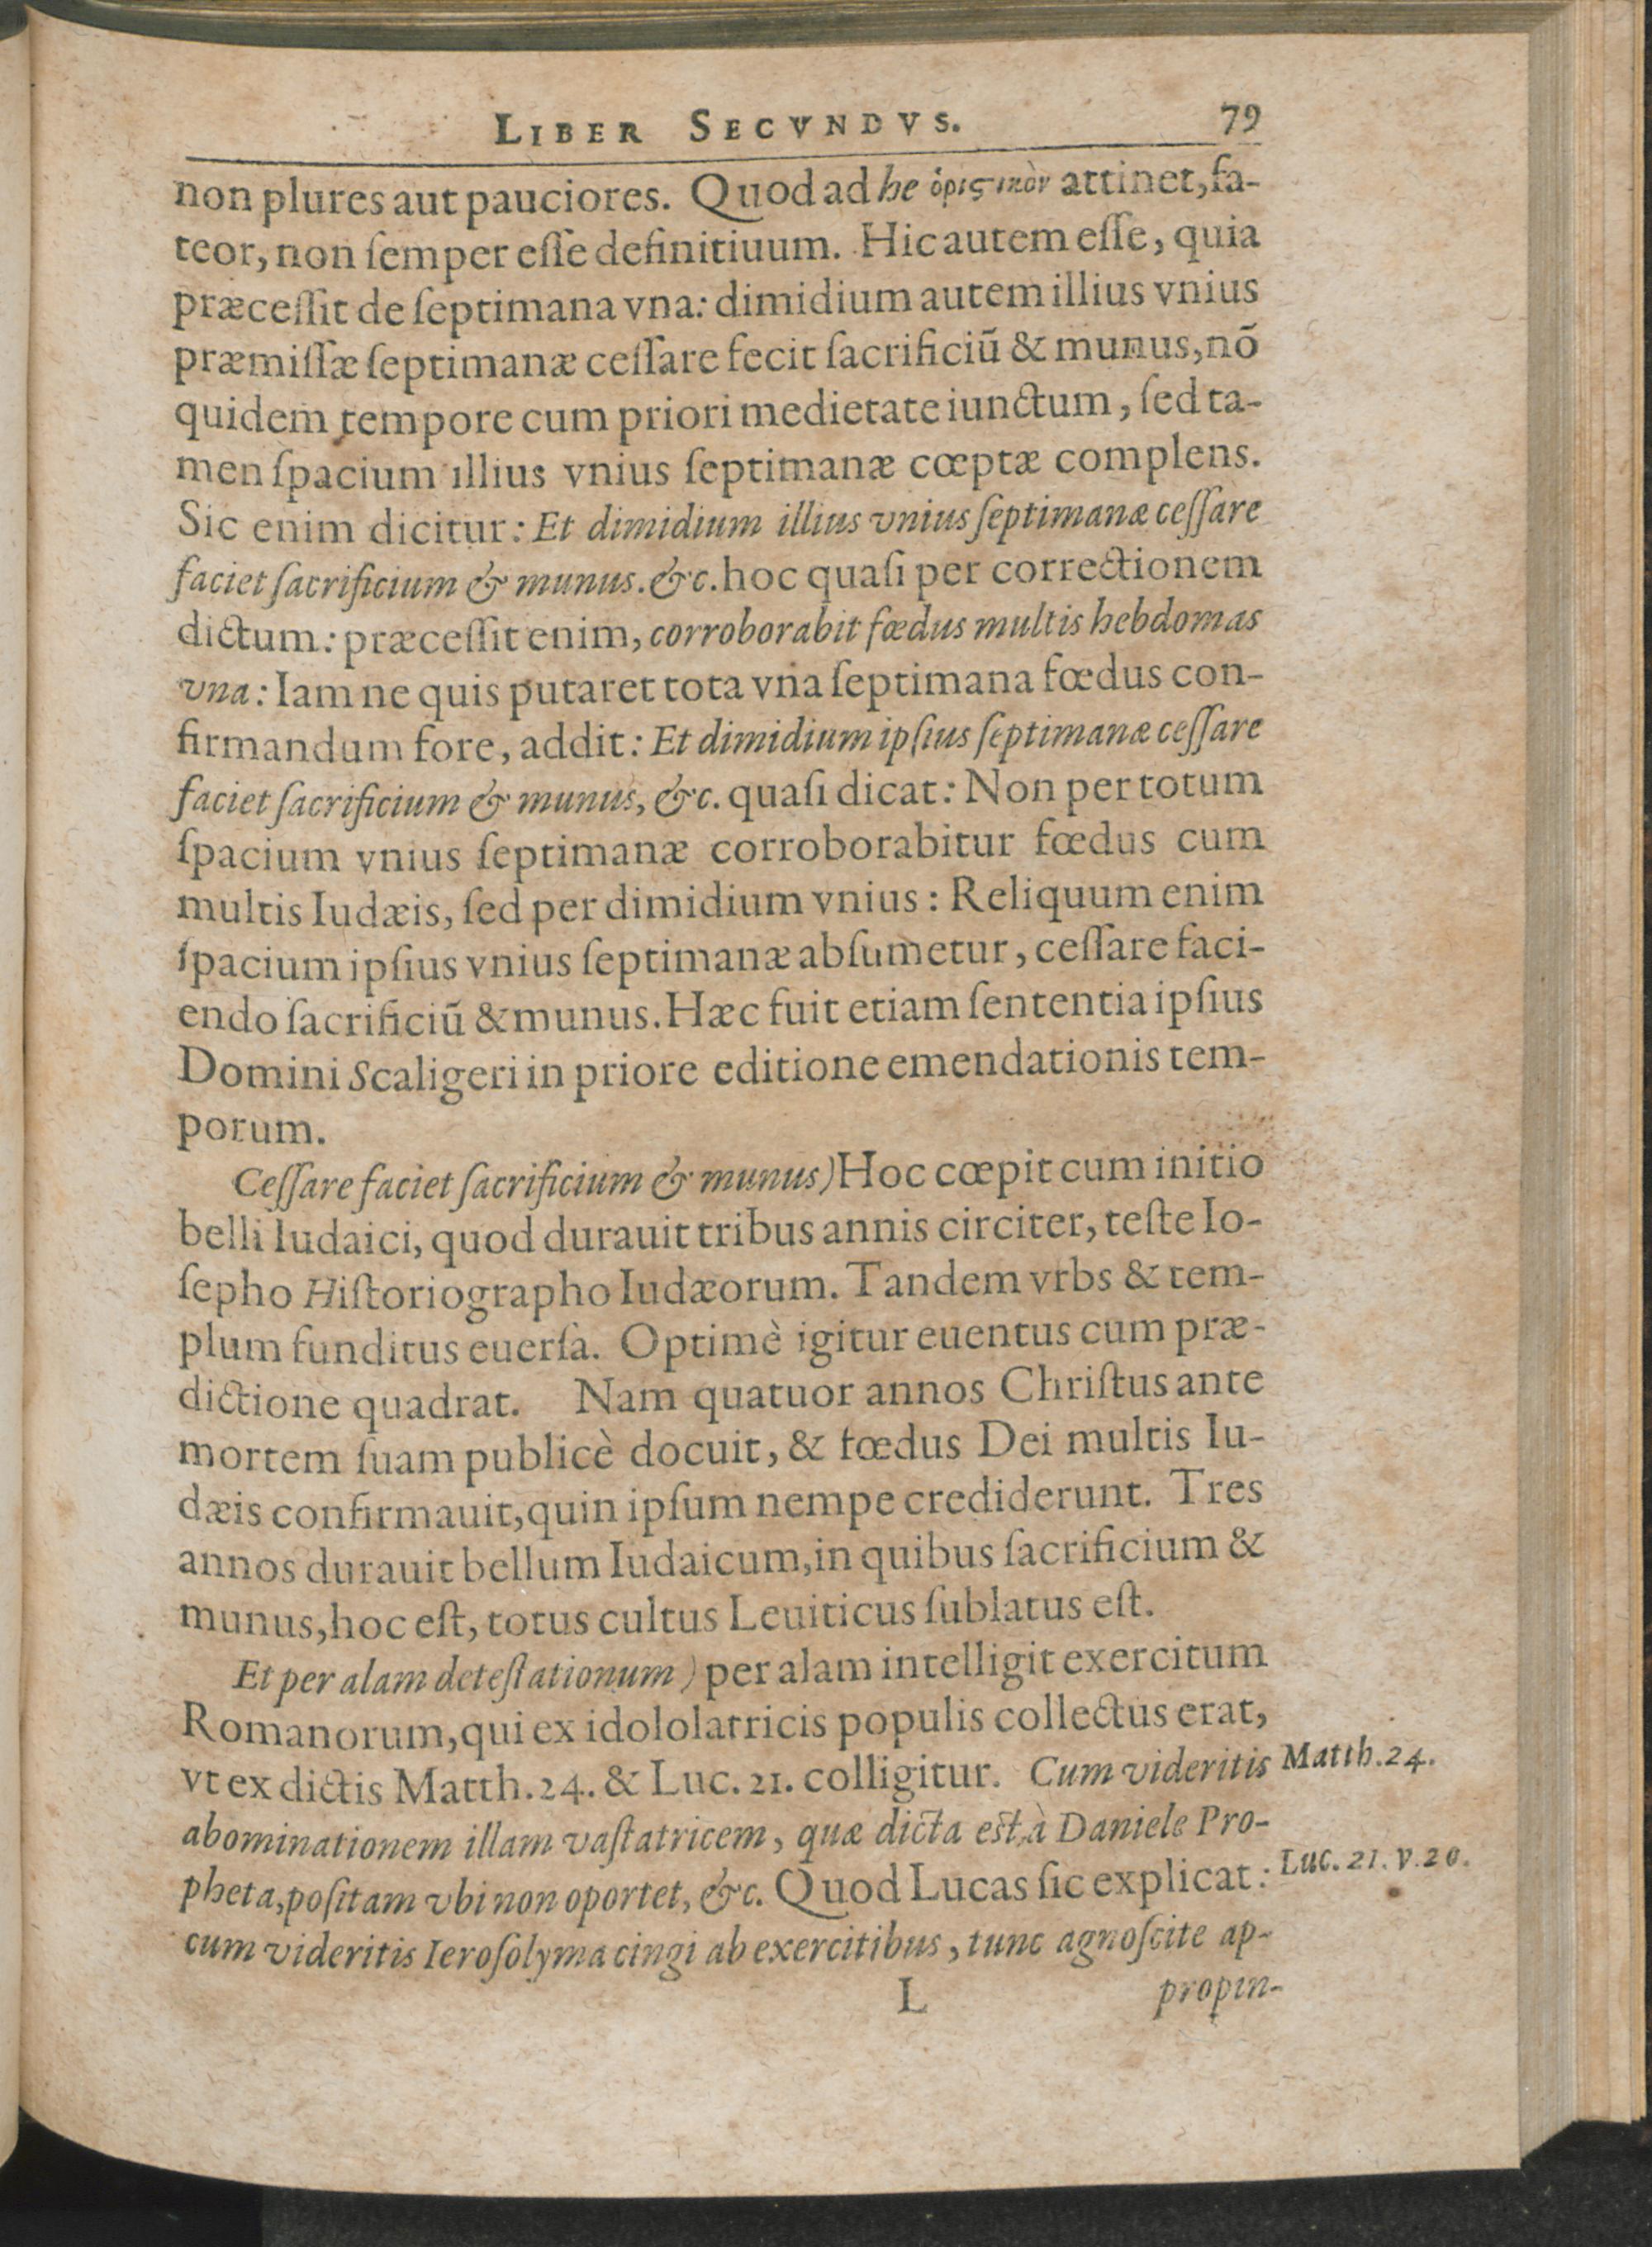 LIBER SECVNDVS. 79
non plures aut pauciores. Quod ad he ὁριϛικὸν attinet, fa-
teor, non ſemper eſſe definitiuum. Hic autem eſſe, quia
præceſſit de ſeptimana vna: dimidium autem illius vnius
præmiſſæ ſeptimanæ ceſſare fecit ſacrificiũ & munus, nõ
quidem tempore cum priori medietate iunctum, ſed ta-
men ſpacium illius vnius ſeptimanæ cœptæ complens.
Sic enim dicitur: Et dimidium illius vnius ſeptimanæ ceſſare
faciet ſacrificium & munus. &c. hoc quaſi per correctionem
dictum: præceſſit enim, corroborabit fœdus multis hebdomas
vna: Iam ne quis putaret tota vna ſeptimana fœdus con-
firmandum fore, addit: Et dimidium ipſius ſeptimanæ ceſſare
faciet ſacrificium & munus, &c. quaſi dicat: Non per totum
ſpacium vnius ſeptimanæ corroborabitur fœdus cum
multis Iudæis, ſed per dimidium vnius: Reliquum enim
ſpacium ipſius vnius ſeptimanæ abſumetur, ceſſare faci-
endo ſacrificiũ & munus. Hæc fuit etiam ſententia ipſius
Domini Scaligeri in priore editione emendationis tem-
porum.
Ceſſare faciet ſacrificium & munus) Hoc cœpit cum initio
belli Iudaici, quod durauit tribus annis circiter, teſte Io-
ſepho Hiſtoriographo Iudæorum. Tandem vrbs & tem-
plum funditus euerſa. Optimè igitur euentus cum præ-
dictione quadrat. Nam quatuor annos Chriſtus ante
mortem ſuam publicè docuit, & fœdus Dei multis Iu-
dæis confirmauit, quin ipſum nempe crediderunt. Tres
annos durauit bellum Iudaicum, in quibus ſacrificium &
munus, hoc eſt, totus cultus Leuiticus ſublatus eſt.
Et per alam deteſtationum) per alam intelligit exercitum
Romanorum, qui ex idololatricis populis collectus erat,
vt ex dictis Matth. 24. & Luc. 21. colligitur. Cum videritis
Matth. 24.
abominationem illam vaſtatricem, quæ dicta eſt, à Daniele Pro-
pheta, poſitam vbi non oportet, &c. Quod Lucas ſic explicat:
Luc. 21. v. 20.
cum videritis Ieroſolyma cingi ab exercitibus, tunc agnoſcite ap-
L propin-